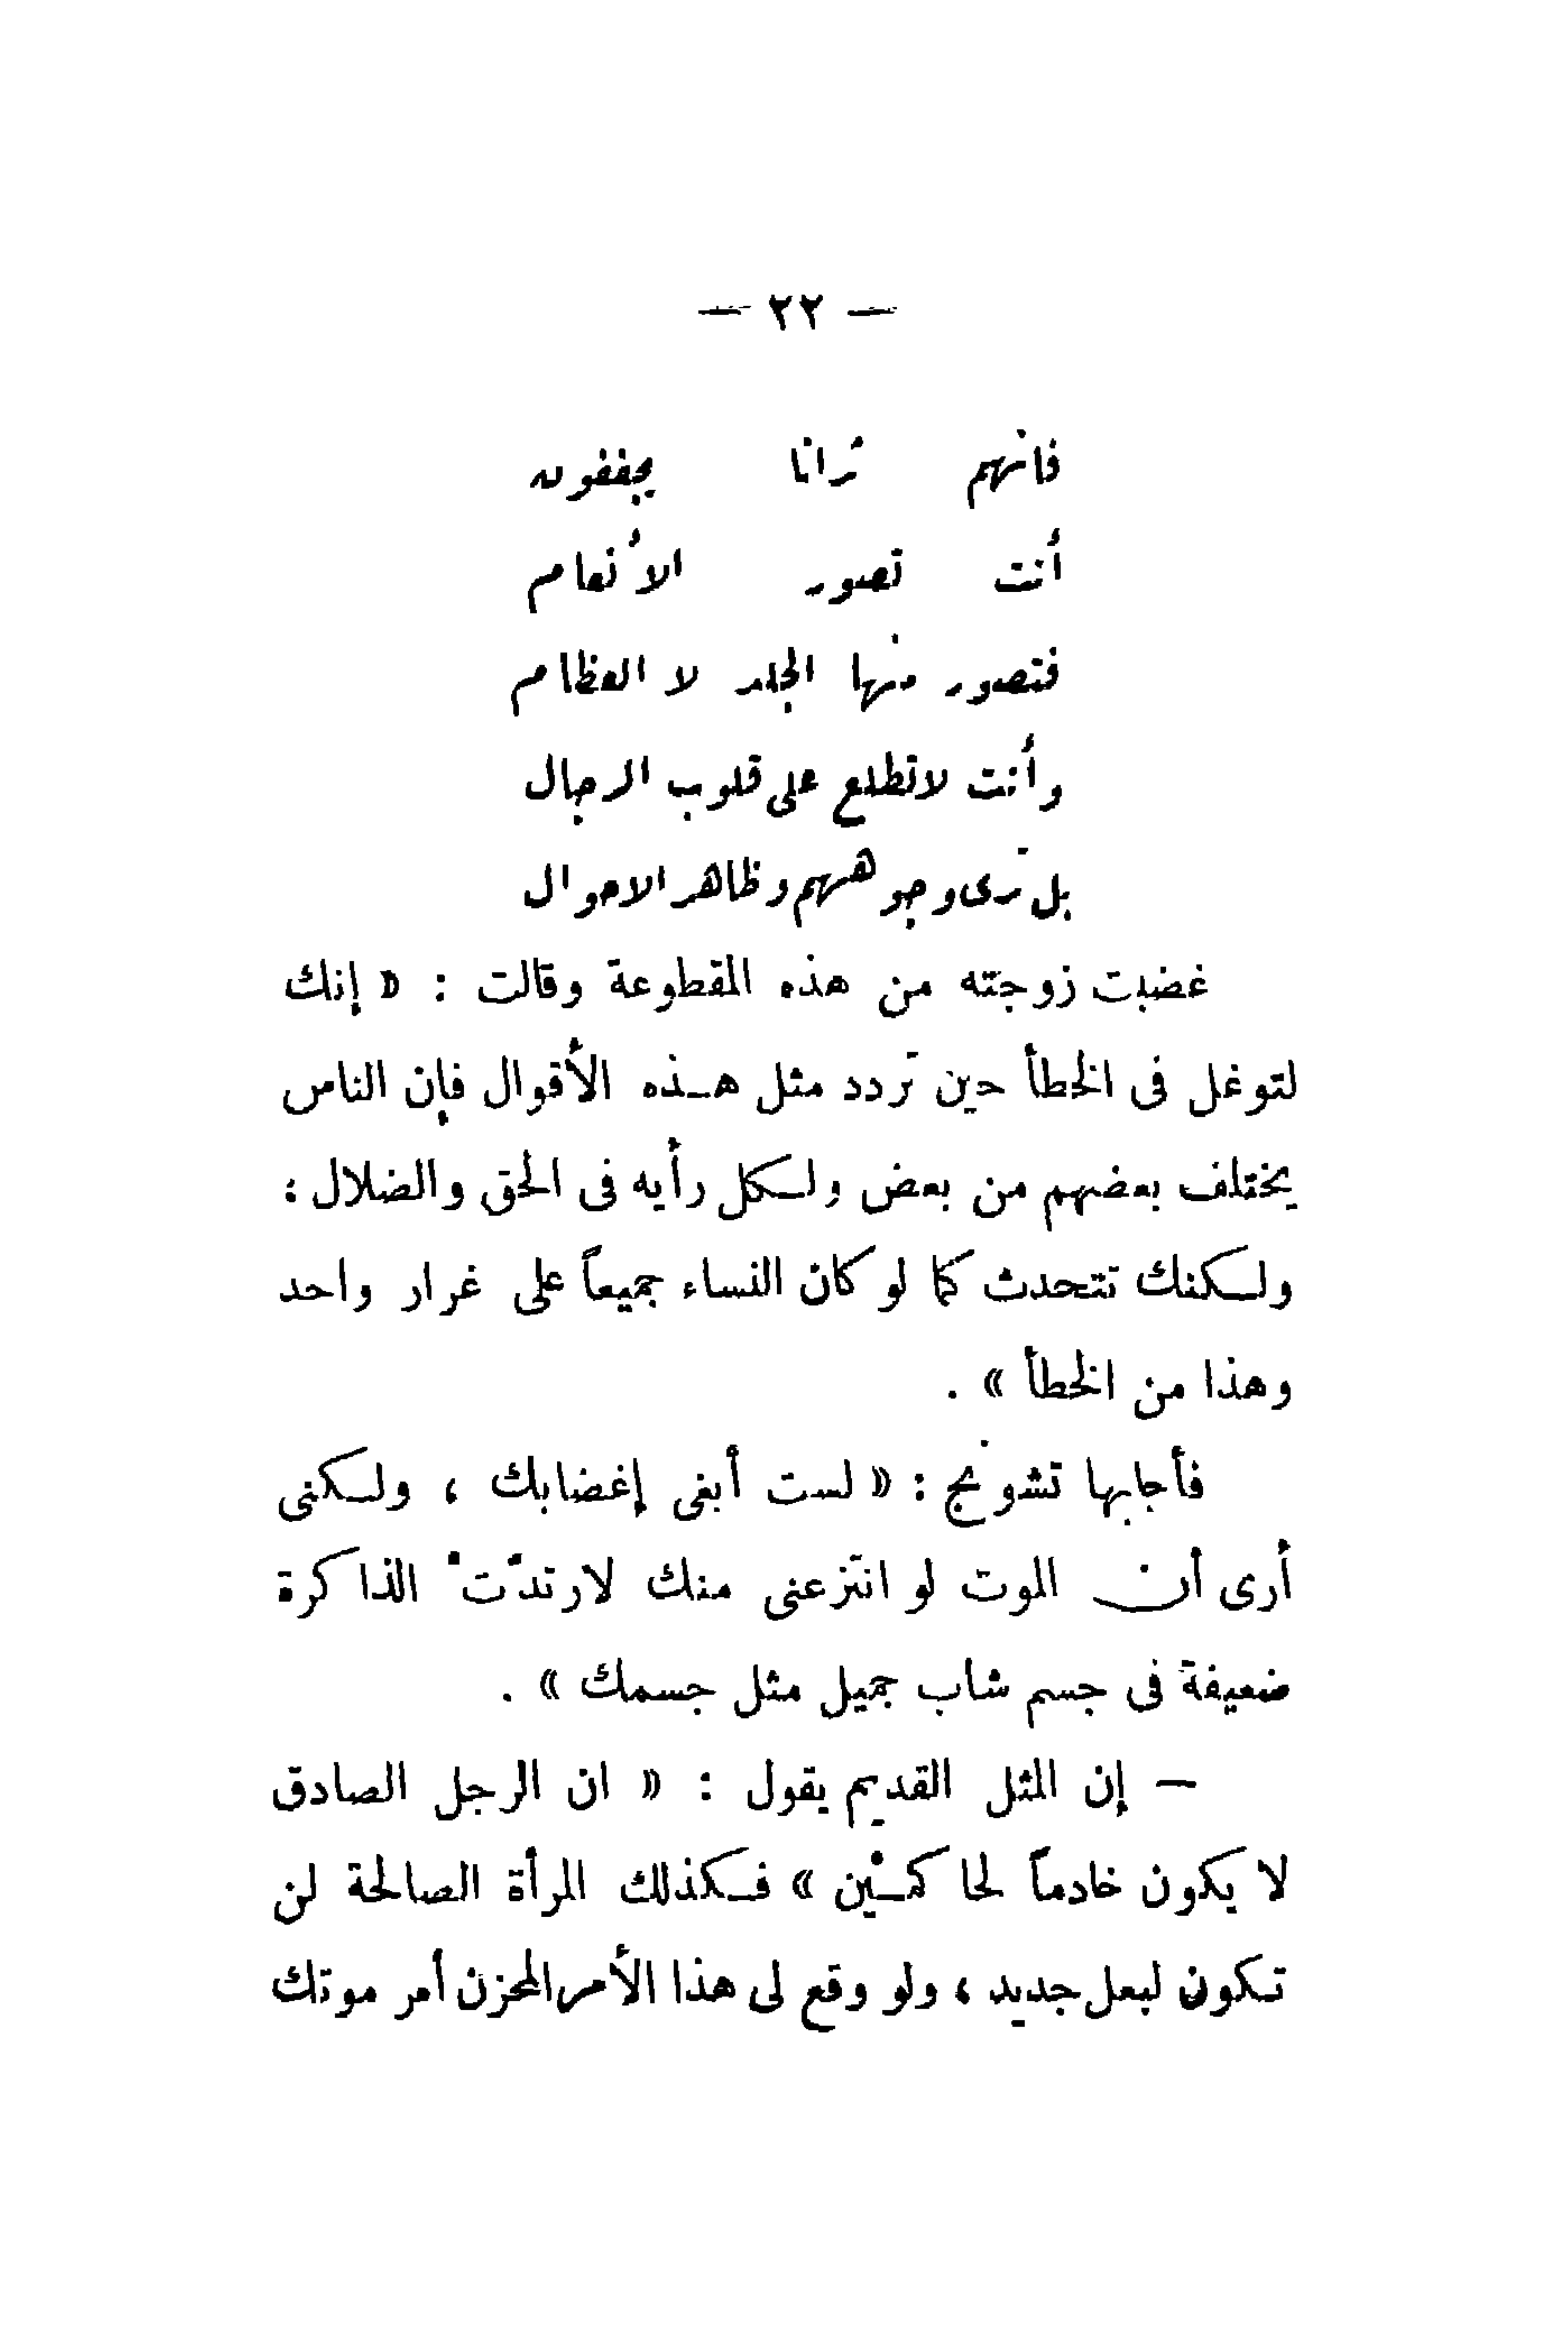 — ٢٢ —
فانهم ثرانا يجففون
أنت تصور الأنعام
فتصور منها الجلد لا العظام
وأنت لا تطلع على قلوب الرجال
بل ترى وجوههم وظاهر الاحوال
غضبت زوجته من هذه المقطوعة وقالت : « إنك
لتوغل فى الخطأ حين تردد مثل هـذه الأقوال فإن الناس
يختلف بعضهم من بعض ولـكل رأيه فى الحق والضلال ؛
ولـكنك تتحدث كما لو كان النساء جميعاً على غرار واحد
وهذا من الخطأ » .
فأجابها تشونج : « لست أبغى إغضابك ، ولـكنى
أرى أن الموت لو انتزعنى منك لارتدّتْ الذاكرة
ضعيفة فى جسم شاب جميل مثل جسمك » .
— إن المثل القديم يقول : « ان الرجل الصادق
لا يكون خادماً لحاكمـيْن » فـكذلك المرأة الصالحة لن
تـكون لبعل جديد ، ولو وقع لى هذا الأمر المحزن أمر موتك